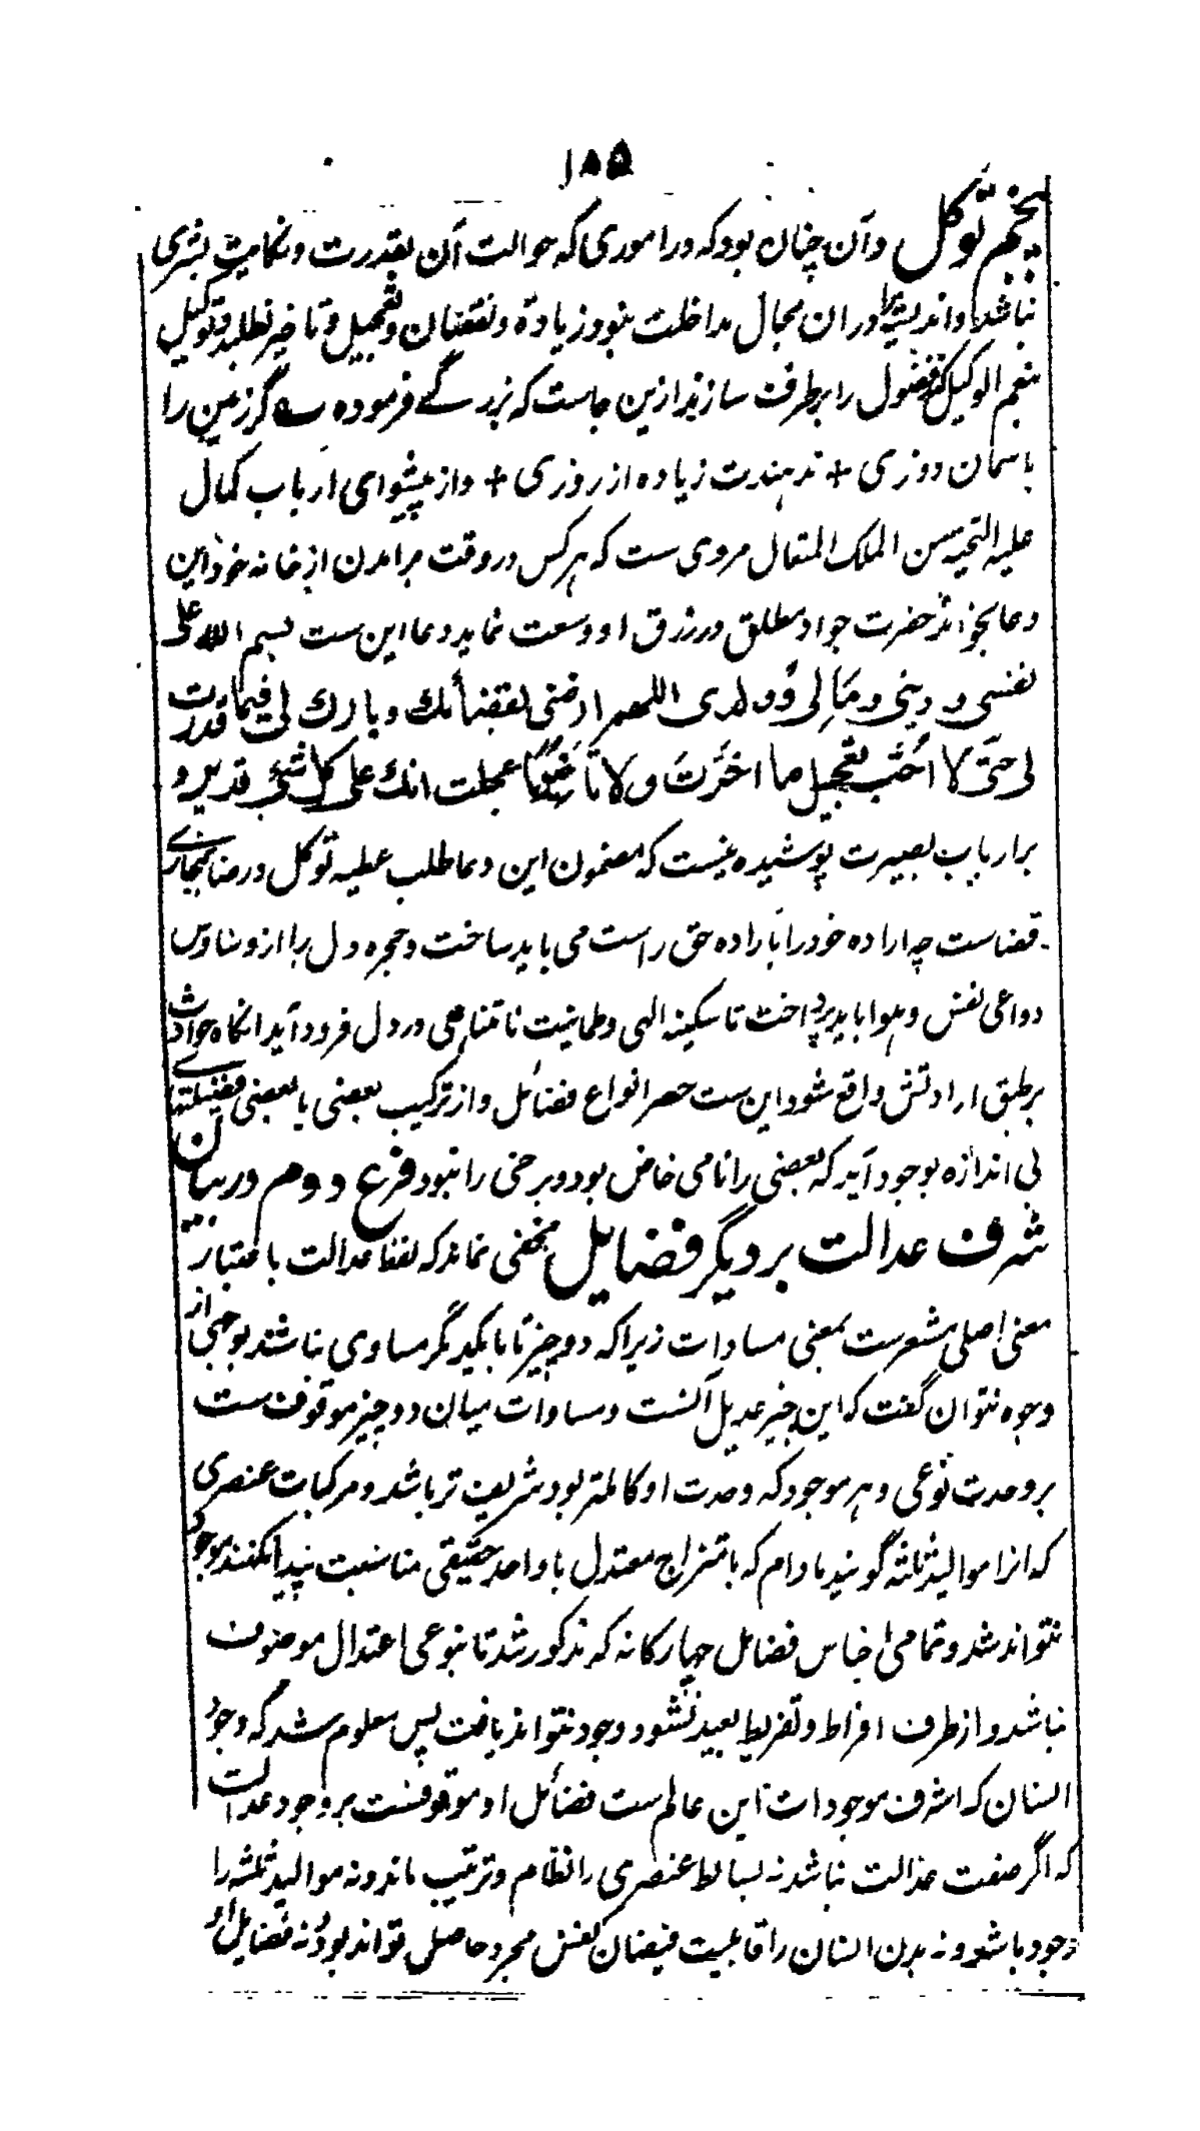 ۱۸۵
پنجم توکل و آن چنان بود که در اموری که حوالت آن بقدرت و کفایت بشری
نباشد و اندیشه را دران مجال مداخلت نبود زیادة و نقصان و تعجیل و تاخیر نطلبد و توکیل
نعم الوکیل کند فضول را برطرف سازند ازین جاست که بزرگے فرموده ے گر زمین را
بآسمان دوزی + ندهندت زیاده از روزی + و از پیشوای ارباب کمال
علیه التحیة من الملک المتعال مروی ست که هر کس در وقت برامدن از خانه خود این
دعا بخواند حضرت جواد مطلق در رزق او وسعت نماید و دعا این ست بسم الله علی
نفسی و دینی و مَالِی وَ ولدی اللهم ارضنی بقضائك و بارك لی فیما قدرت
لی حَتّی لا اُحِبَّ تعجیل ما اخَّرتَ ولا تاخیر ما عجلت انك علی کل شئ قدیر و
بر ارباب بصیرت پوشیده نیست که مضمون این دعا طلب عطیه توکل و رضا بمجاری
قضاست چه اراده خود را باراده حق راست می باید ساخت و حجره دل را از وساوس
دواعی نفس و هوا باید پرداخت تا سکینه الهی و طمانیت نامتناهی در دل فرود آید انگاه حوادث
بر طبق ارادتش واقع شود این ست حصر انواع فضائل و از ترکیب بعضی با بعضی فضیلتهاے
بی اندازه بوجود آید که بعضی را نامی خاص بود و برخی را نبود فرع دوم در بیان
شرف عدالت بر دیگر فضایل مخفی نماند که لفظ عدالت باعتبار
معنی اصلی مشعرست بمعنی مساوات زیرا که دو چیز تا بایکدیگر مساوی نباشند بوجهی از
وجوه نتوان گفت که این چیز عدیل آنست و مساوات میان دو چیز موقوف ست
بر وحدت نوعی و هر موجود که وحدت او کاملتر بود شریف تر باشد و مرکبات عنصری
که انرا موالید ثلثه گویند مادام که بامتزاج معتدل با واحد حقیقی مناسبت پیدا نکنند موجود
نتواند شد و تمامی اجناس فضایل چهارگانه که مذکور شد تا بنوعی اعتدال موصوف
نباشد و از طرف افراط و تفریط بعید نشود وجود نتواند یافت پس معلوم شد که وجود
انسان که اشرف موجودات این عالم ست فضائل او موقوفست بر وجود عدالت
که اگر صفت عدالت نباشد نه بسایط عنصری را نظام و ترتیب ماند و نه موالید ثلثه را
وجود باشد و نه بدن انسان را قابلیت فیضان نفس مجرد حاصل تواند بود و نه فضایل او